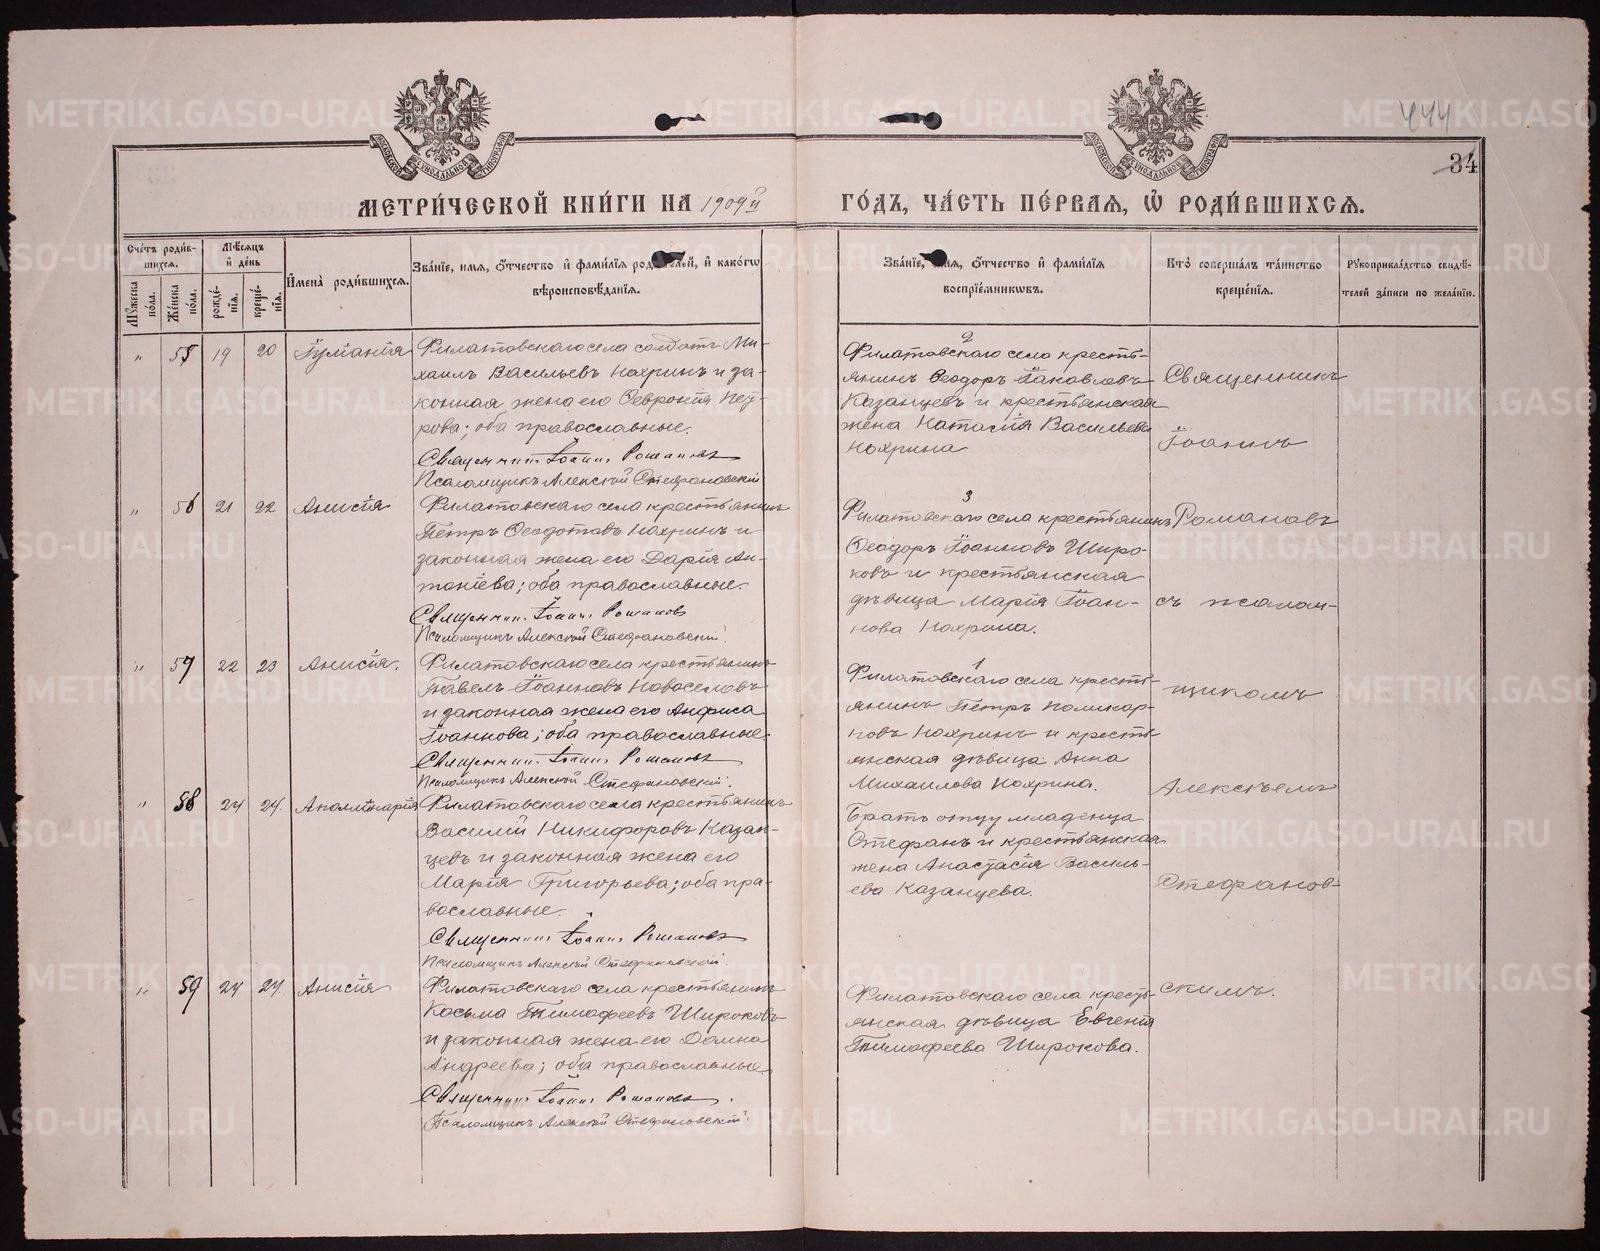 444
34
МЕТРИ́ЧЕСКОЙ КНИ́ГИ НА 1909й ГО́ДЪ, ЧА́СТЬ ПЕ́РВАЯ, Ѽ РОДИ́ВШИХСѦ.
Сче́тъ роди́вшихсѧ.
Мꙋ́жеска по́ла.
Же́нска по́ла.
Мѣ́сѧцъ и҆ де́нь
рожде́нїѧ.
креще́нїѧ.
И҆мена̀ роди́вшихсѧ.
Зва́нїе, и҆мѧ, ѻ҆́тчество и҆ фами́лїѧ роди́телей, и҆ како́гѡ
вѣроисповѣ́данїѧ.
Зва́нїе, и҆мѧ, ѻ҆́тчество и҆ фами́лїѧ
воспрїе́мникѡвъ.
Кто̀ соверша́лъ та́инство
креще́нїѧ.
Рꙋкоприкла́дство свидѣ́-
телей за́писи по жела́нїю.
" 55 19 20 Іуліанія
Филатовскаго села солдатъ Ми-
хаилъ Васильевъ Нохринъ и за-
конная жена его Ѳевронія Пет-
рова; оба православные.
Священникъ Іоаннъ Романовъ
Псаломщикъ Алексѣй Стефановскій
2
Филатовскаго села кресть-
янинъ Ѳеодоръ Іаковлевъ
Казанцевъ и крестьянская
жена Наталія Васильева
Нохрина
" 56 21 22 Анисія
Филатовскаго села крестьянинъ
Петръ Ѳеодотовъ Нохринъ и
законная жена его Дарія Ан-
тоніева; оба православные.
Священник. Іоаннъ Романовъ
Псаломщикъ Алексѣй Стефановскій.
3
Филатовскаго села крестьянинъ
Ѳеодоръ Іоанновъ Широ-
ковъ и крестьянская
дѣвица Марія Іоан-
нова Нохрина.
" 57 22 23 Анисія.
Филатовскаго села крестьянинъ
Павелъ Іоанновъ Новоселовъ
и законная жена его Анфиса
Іоаннова; оба православные.
Священник. Іоаннъ Романовъ
Псаломщикъ Алексѣй Стефановскій.
1
Филатовскаго села кресть-
янинъ Петръ Поликар-
повъ Нохринъ и кресть-
янская дѣвица Анна
Михаилова Нохрина.
" 58 24 24. Аполлинарія
Филатовскаго села крестьянинъ
Василій Никифоровъ Казан-
цевъ и законная жена его
Марія Григорьева; оба пра-
вославные.
Священник. Іоаннъ Романовъ
Псаломщикъ Алексѣй Стефановскій.
Братъ отцу младенца
Стефанъ и крестьянская
жена Анастасія Василь-
ева Казанцева.
" 59 24 24. Анисія
Филатовскаго села крестьянинъ
Косьма Тимофеевъ Широковъ
и законная жена его Домна
Андреева; оба православные.
Священник. Іоаннъ Романовъ.
Псаломщикъ Алексѣй Стефановскій.
Филатовскаго села кресть-
янская дѣвица Евгенія
Тимофеева Широкова.
Священникъ
Іоаннъ
Романовъ
съ псалом-
щикомъ
Алексѣемъ
Стефанов-
скимъ.
METRIKI.GASO-URAL.RU